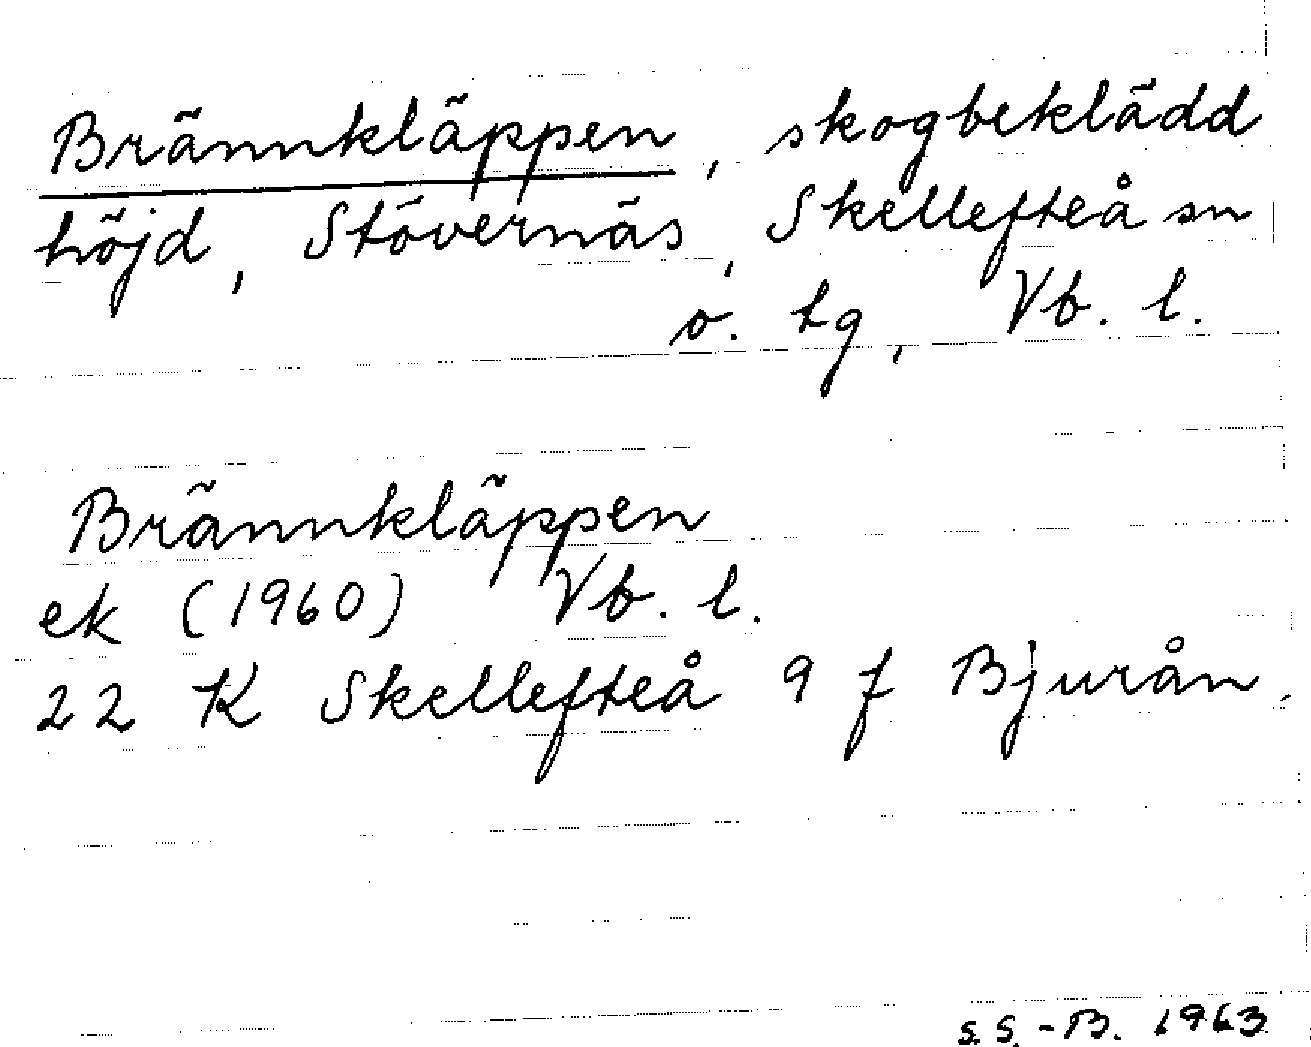 Brännkläppen, skogbeklädd
höjd, Stövernäs, Skellefteå sn
o. tg, Vb. l.
Brännkläppen
ek (1960) Vb. l.
22 K Skellefteå 9 f Bjurån.
S.S.-B. 1963